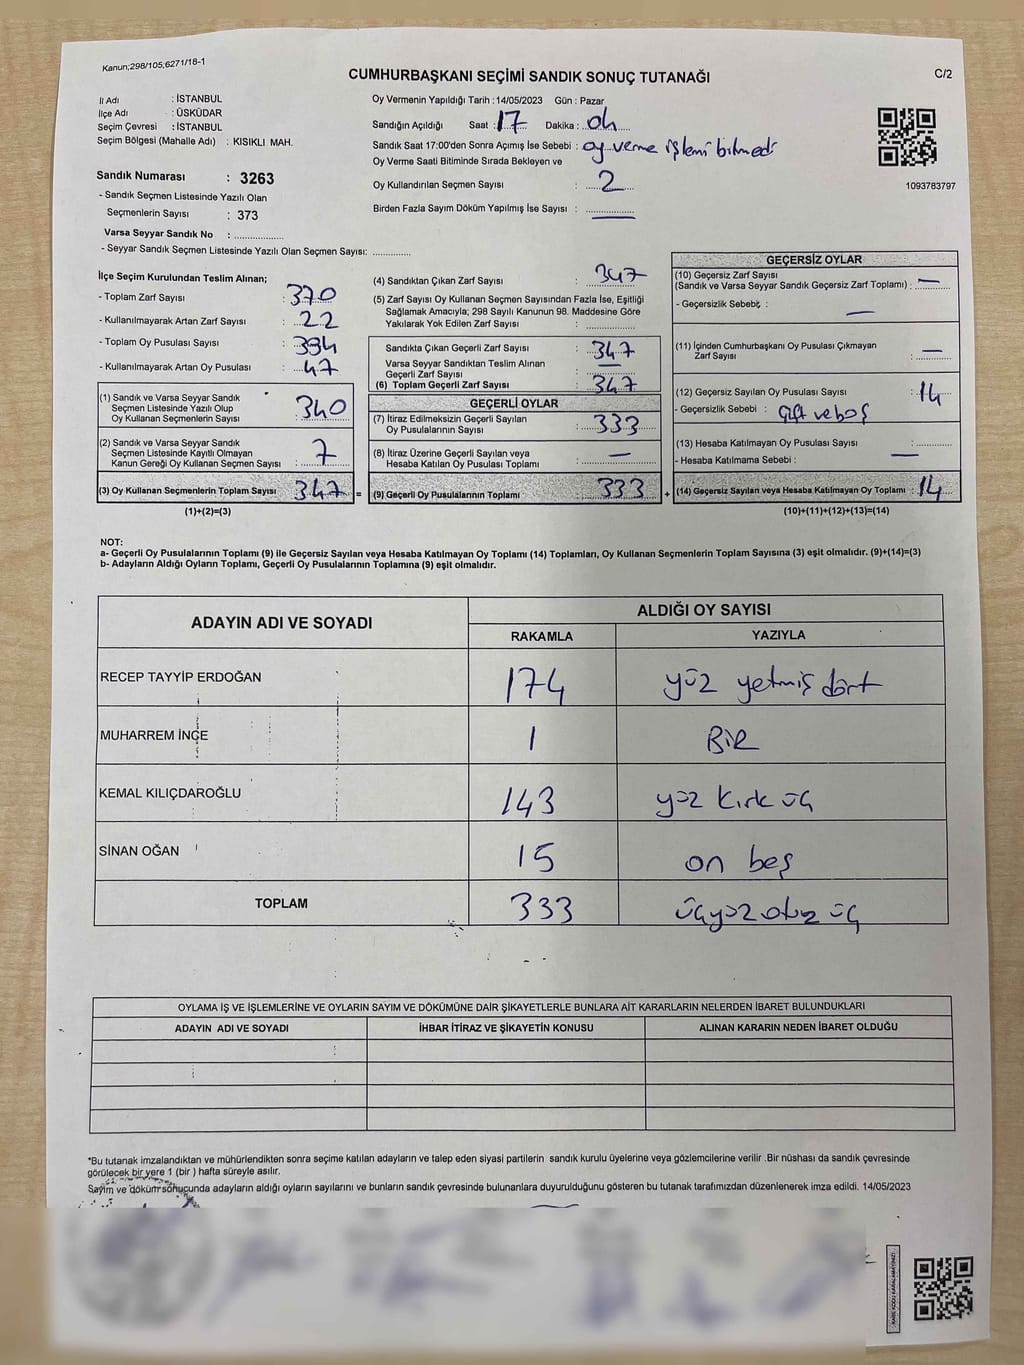 Kanun;298/105;6271/18-1
CUMHURBAŞKANI SEÇİMİ SANDIK SONUÇ TUTANAĞI
C/2
İl Adı : İSTANBUL
İlçe Adı : ÜSKÜDAR
Seçim Çevresi : İSTANBUL
Seçim Bölgesi (Mahalle Adı) : KISIKLI MAH.
Sandık Numarası : 3263
- Sandık Seçmen Listesinde Yazılı Olan
Seçmenlerin Sayısı : 373
Varsa Seyyar Sandık No : ..............
- Seyyar Sandık Seçmen Listesinde Yazılı Olan Seçmen Sayısı: ..............
Oy Vermenin Yapıldığı Tarih : 14/05/2023 Gün : Pazar
Sandığın Açıldığı Saat : 17 Dakika :
Sandık Saat 17:00'den Sonra Açımış İse Sebebi : oy verme işlemi bitmedi
Oy Verme Saati Bitiminde Sırada Bekleyen ve
Oy Kullandırılan Seçmen Sayısı : 2
Birden Fazla Sayım Döküm Yapılmış İse Sayısı : —
1093783797
İlçe Seçim Kurulundan Teslim Alınan;
- Toplam Zarf Sayısı : 370
- Kullanılmayarak Artan Zarf Sayısı : 22
- Toplam Oy Pusulası Sayısı : 394
- Kullanılmayarak Artan Oy Pusulası : 47
(1) Sandık ve Varsa Seyyar Sandık
Seçmen Listesinde Yazılı Olup
Oy Kullanan Seçmenlerin Sayısı : 340
(2) Sandık ve Varsa Seyyar Sandık
Seçmen Listesinde Kayıtlı Olmayan
Kanun Gereği Oy Kullanan Seçmen Sayısı : 7
(3) Oy Kullanan Seçmenlerin Toplam Sayısı : 347 =
(1)+(2)=(3)
(4) Sandıktan Çıkan Zarf Sayısı : 347
(5) Zarf Sayısı Oy Kullanan Seçmen Sayısından Fazla İse, Eşitliği
Sağlamak Amacıyla; 298 Sayılı Kanunun 98. Maddesine Göre
Yakılarak Yok Edilen Zarf Sayısı : ..............
Sandıkta Çıkan Geçerli Zarf Sayısı : 347
Varsa Seyyar Sandıktan Teslim Alınan
Geçerli Zarf Sayısı : —
(6) Toplam Geçerli Zarf Sayısı : 347
GEÇERLİ OYLAR
(7) İtiraz Edilmeksizin Geçerli Sayılan
Oy Pusulalarının Sayısı : 333
(8) İtiraz Üzerine Geçerli Sayılan veya
Hesaba Katılan Oy Pusulası Toplamı : —
(9) Geçerli Oy Pusulalarının Toplamı : 333 +
GEÇERSİZ OYLAR
(10) Geçersiz Zarf Sayısı
(Sandık ve Varsa Seyyar Sandık Geçersiz Zarf Toplamı) : —
- Geçersizlik Sebebi : —
(11) İçinden Cumhurbaşkanı Oy Pusulası Çıkmayan
Zarf Sayısı : —
(12) Geçersiz Sayılan Oy Pusulası Sayısı : 14
- Geçersizlik Sebebi : Çift ve boş
(13) Hesaba Katılmayan Oy Pusulası Sayısı : ..............
- Hesaba Katılmama Sebebi : —
(14) Geçersiz Sayılan veya Hesaba Katılmayan Oy Toplamı : 14
(10)+(11)+(12)+(13)=(14)
NOT:
a- Geçerli Oy Pusulalarının Toplamı (9) ile Geçersiz Sayılan veya Hesaba Katılmayan Oy Toplamı (14) Toplamları, Oy Kullanan Seçmenlerin Toplam Sayısına (3) eşit olmalıdır. (9)+(14)=(3)
b- Adayların Aldığı Oyların Toplamı, Geçerli Oy Pusulalarının Toplamına (9) eşit olmalıdır.
ADAYIN ADI VE SOYADI ALDIĞI OY SAYISI
RAKAMLA YAZIYLA
RECEP TAYYİP ERDOĞAN 174 yüz yetmiş dört
MUHARREM İNCE 1 BİR
KEMAL KILIÇDAROĞLU 143 yüz kırk üç
SİNAN OĞAN 15 on beş
TOPLAM 333 üçyüz otuz üç
OYLAMA İŞ VE İŞLEMLERİNE VE OYLARIN SAYIM VE DÖKÜMÜNE DAİR ŞİKAYETLERLE BUNLARA AİT KARARLARIN NELERDEN İBARET BULUNDUKLARI
ADAYIN ADI VE SOYADI İHBAR İTİRAZ VE ŞİKAYETİN KONUSU ALINAN KARARIN NEDEN İBARET OLDUĞU
*Bu tutanak imzalandıktan ve mühürlendikten sonra seçime katılan adayların ve talep eden siyasi partilerin sandık kurulu üyelerine veya gözlemcilerine verilir .Bir nüshası da sandık çevresinde
görülecek bir yere 1 (bir ) hafta süreyle asılır.
Sayım ve döküm sonucunda adayların aldığı oyların sayılarını ve bunların sandık çevresinde bulunanlara duyurulduğunu gösteren bu tutanak tarafımızdan düzenlenerek imza edildi. 14/05/2023